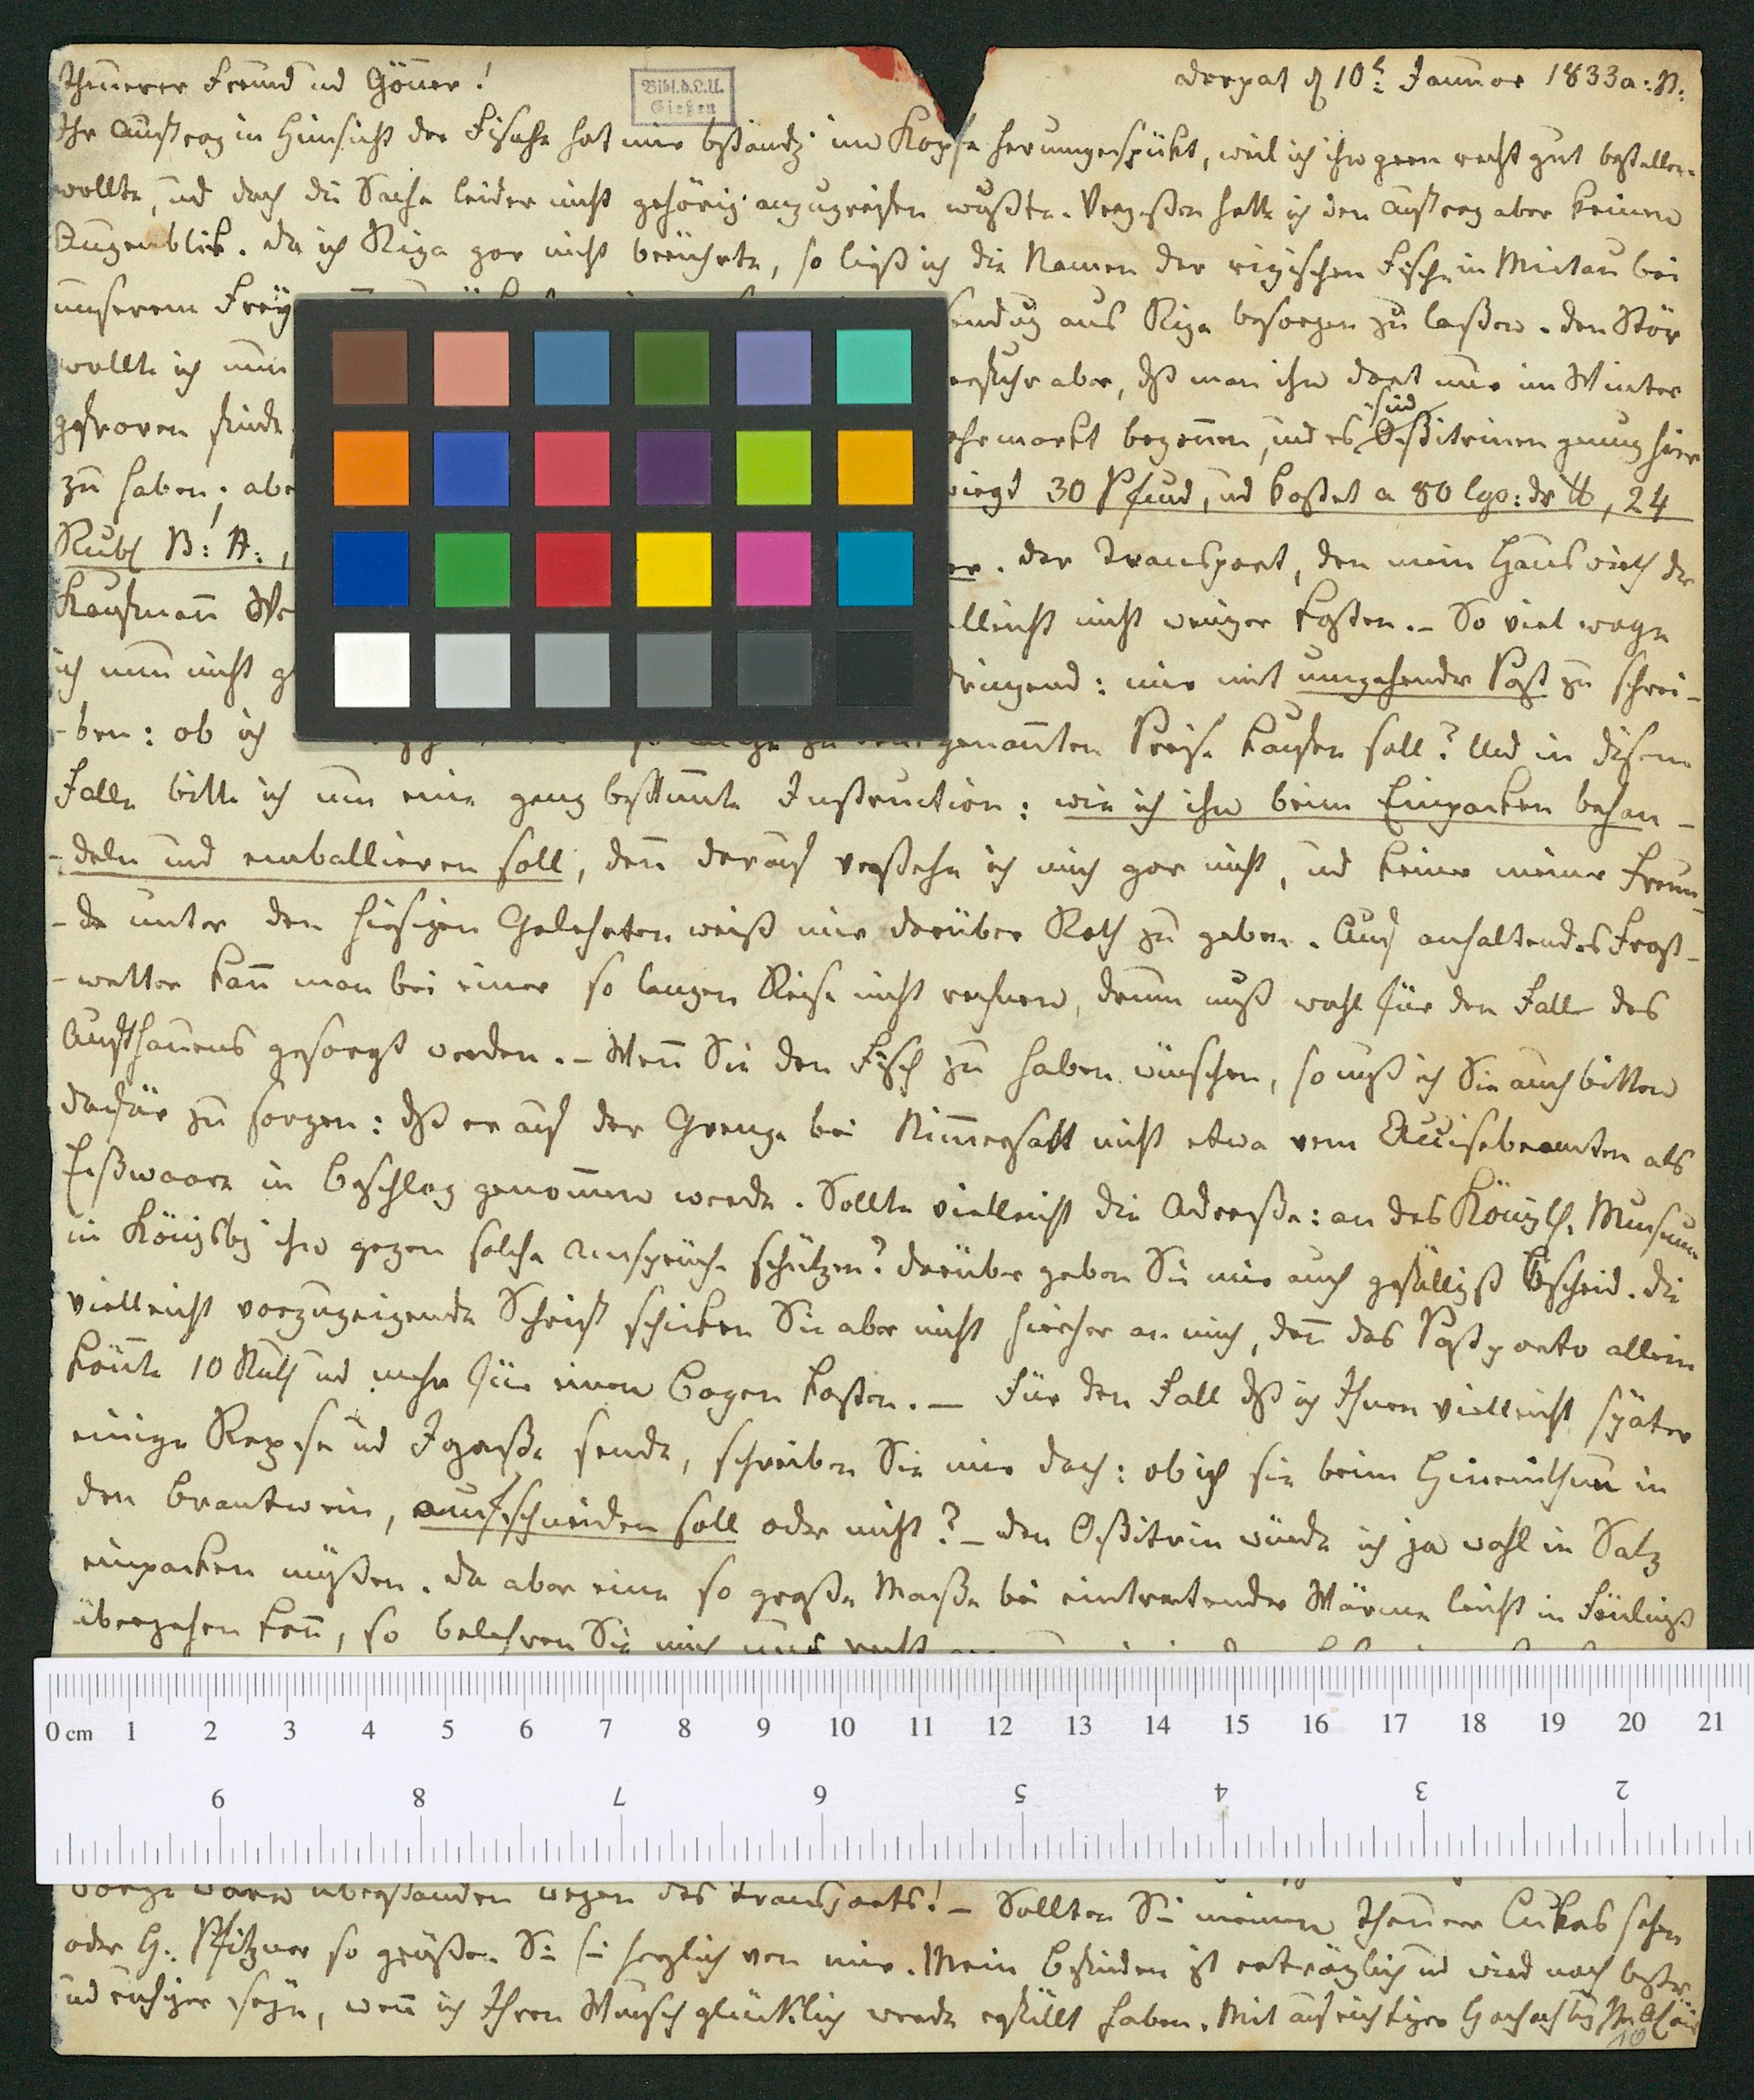 Theurer Freund und Gönner!
Bibl.d.L.U.
Gießen
Dorpat d 10t Januar 1833 a: St:
Ihr Auftrag in Hinsicht der Fische hat mir beständig im Kopfe herumgespükt, weil ich ihn gern recht gut bestellen
wollte, und doch die Sache leider nicht gehörig anzugreifen wußte. Vergeßen hatte ich den Auftrag aber keinen
Augenblick. Da ich Riga gar nicht berührte, so ließ ich die Namen der rigischen Fische in Mitau bei
unserem Frey
sendung aus Riga besorgen zu laßen. Den Stör
wollte ich nun
erfuhr aber, daß man ihn dort nur im Winter
gefroren finde
ahrmarkt begonnen, und es sind Oßitrinen genug hier
zu haben; abe
wiegt 30 Pfund, und kostet a 80 Cop: dr ℔, 24
Rubl B: A:,
er. Der Transport, den mein Hauswirth der
Kaufmann We
lleicht nicht weniger kosten. – So viel wage
ich nun nicht g
dringend: mir mit umgehender Post zu schrei-
-ben: ob ich
genannten Preise kaufen soll? Und in diesem
Falle bitte ich um eine ganz bestimmte Instruction: wie ich ihn beim Einpacken behan-
-deln und emballieren soll, denn darauf verstehe ich mich gar nicht, und keiner meiner Freun-
-de unter den hiesigen Gelehrten weiß mir darüber Rath zu geben. Auf anhaltendes Frost-
-wetter kann man bei einer so langen Reise nicht rechnen, drum muß wohl für den Fall des
Aufthauens gesorgt werden. – Wenn Sie den Fisch zu haben wünschen, so muß ich Sie auch bitten
dafür zu sorgen: daß er auf der Grenze bei Nimmersatt nicht etwa vom Accisebeamten als
Eßwaare in Beschlag genommen werde. Sollte vielleicht die Adreße: an das Königl. Museum
in Königsbg ihn gegen solche Ansprüche schützen? Darüber geben Sie mir auch gefälligst Bescheid. Die
vielleicht vorzuzeigende Schrift schicken Sie aber nicht hierher an mich, denn das Postporto allein
könnte 10 Rubl und mehr für einen Bogen kosten. – Für den Fall daß ich Ihnen vielleicht später
einige Rapfe und sende, schreiben Sie mir doch: ob ich sie beim Hineinthun in
den Brantwein, aufschneiden soll oder nicht? – Den Oßitrin würde ich ja wohl in Salz
einpacken müßen. Da aber eine so große Maße bei eintretender Wärme leicht in Fäulniß
übergehen kann, so belehren Sie mich nur recht
0 cm 1 2 3 4 5 6 7 8 9 10 11 12 13 14 15 16 17 18 19 20 21
9 8 7 6 5 4 3 2
wegen des Transports! – Sollten Sie meinen theuren Lukas sehen
oder H. Pfitzner so grüßen Sie sie herzlich von mir. Mein Befinden ist erträglich und wird noch beßer
und ruhiger seyn, wenn ich Ihren Wunsch glücklich werde erfüllt haben. Mit aufrichtiger Hochachtung
10